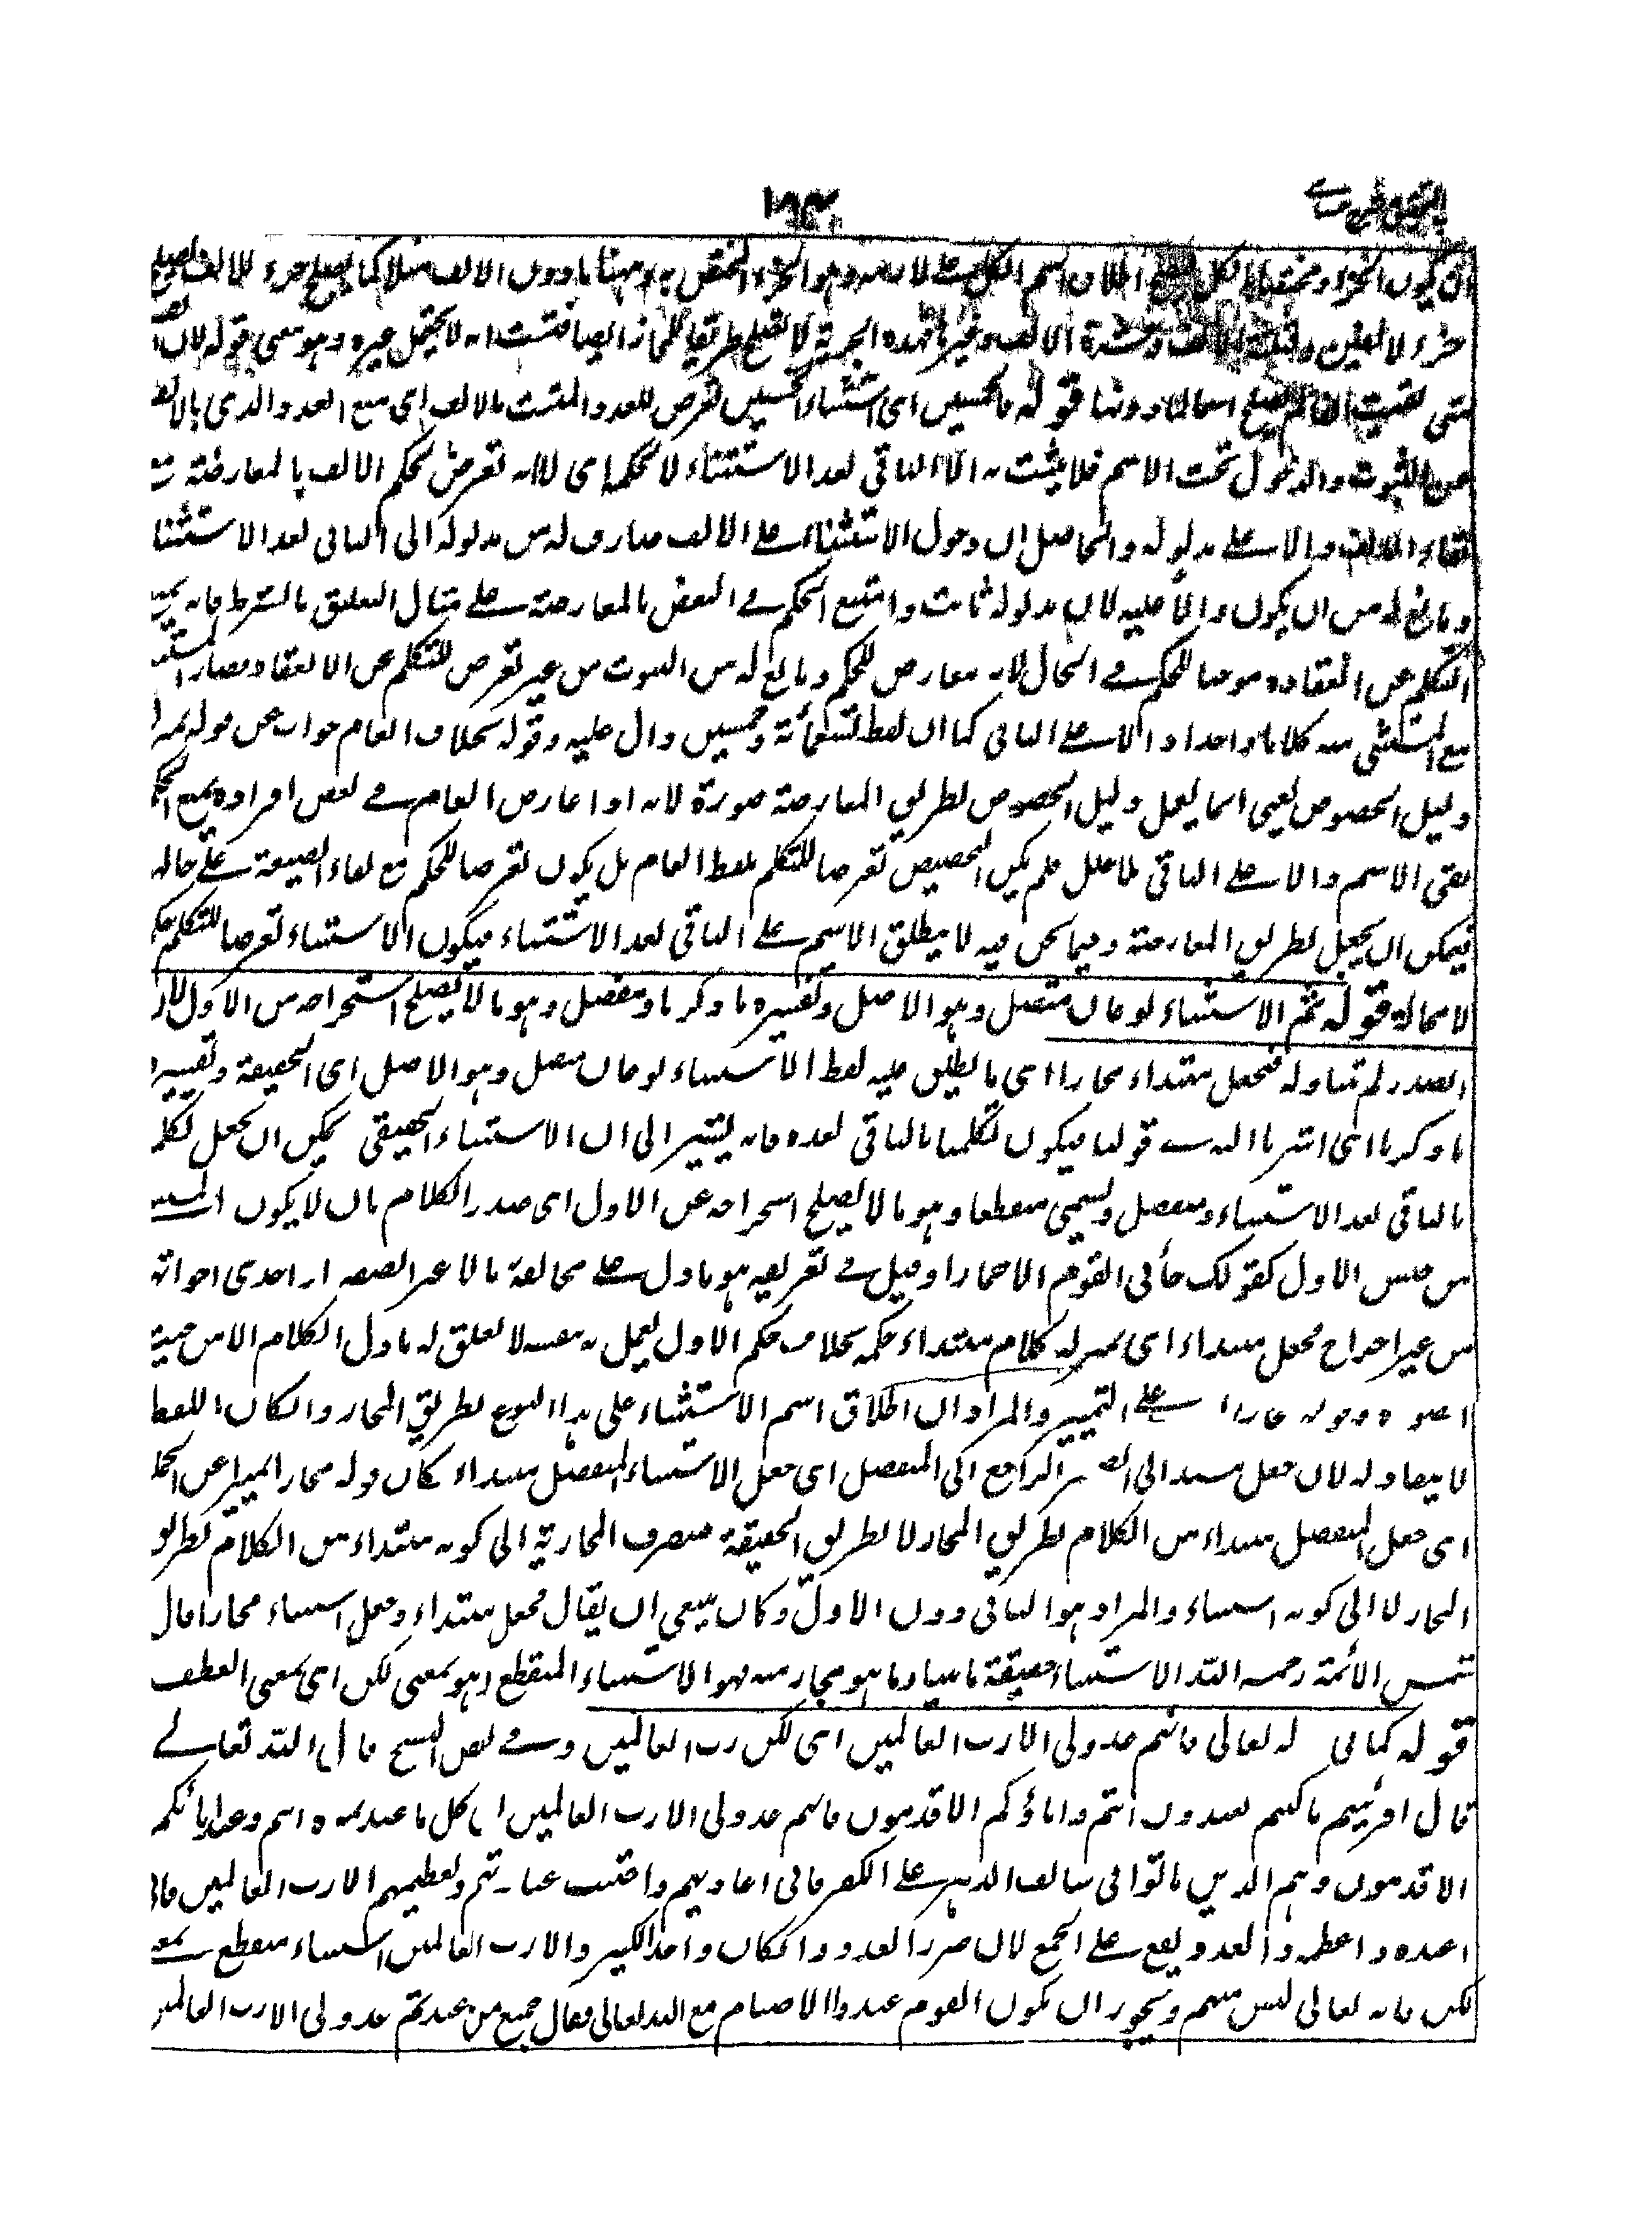 ١٦٣
ان يكون الجزء مختصا بالكل اطلاق اسم الكل على لازمه وهو الجزء المختص به وههنا ما دون الالف مثلا كما يصلح جزء للالف يصلح
جزء لالفين وثلثة آلاف وعشرة آلاف وغيرها فهذه الجزئية لا تصلح طريقا للمجاز ايضا فثبت انه لا يحتمل غيره وهو معنى قوله لان
متى بقيت الفا لم يصلح اسما لما دونها قوله فالخمسين اى استثناء الخمسين تعرض للعدد المثبت بالالف اى منع العدد الذى بالالف
عن الثبوت والدخول تحت الاسم فلا يثبت به الا الباقى بعد الاستثناء لا لحكمه اى لا انه تعرض لحكم الالف بالمعارضة مع
بقاء الالف دالا على مدلوله والحاصل ان دخول الاستثناء على الالف صارف له من مدلوله الى الباقى بعد الاستثنا
ومانع له من ان يكون دالا عليه لا ان مدلوله ثابت وامتنع الحكم فى البعض بالمعارضة على مثال التعليق بالشرط فانه يمنع
التكلم عن انعقاده موجبا للحكم فى الحال لا انه معارض للحكم ومانع له من الثبوت من غير تعرض للتكلم عن الانعقاد فصار المستثنى
مع المستثنى منه كلاما واحدا دالا على الباقى كما ان لفظ تسعمائة وخمسين دال عليه وقوله بخلاف العام جواب عن قوله
دليل الخصوص يعنى انما يعمل دليل الخصوص بطريق المعارضة صورة لانه اذا عارض العام فى بعض افراده يمنع الحكم
بقى الاسم دالا على الباقى بلا خلل فلم يكن التخصيص تعرضا للتكلم بلفظ العام بل يكون تعرضا للحكم مع بقاء الصيغة على حالها
فيمكن ان يجعل بطريق المعارضة وفيما نحن فيه لا ينطلق الاسم على الباقى بعد الاستثناء فيكون الاستثناء تعرضا للتكلم
لا محالة قوله ثم الاستثناء نوعان متصل وهو الاصل وتفسيره ما ذكرنا ومنفصل وهو ما لا يصلح استخراجه من الاول لان
الصدر لم يتناوله فجعل مبتداء مجازا اى ما يطلق عليه لفظ الاستثناء نوعان متصل وهو الاصل اى الحقيقة وتفسيره
ما ذكرنا اى اشرنا اليه قولنا فيكون تكلما بالباقى بعده فانه يشير الى ان الاستثناء الحقيقى يمكن ان يجعل تكلما
بالباقى بعد الاستثناء ومنفصل ويسمى منقطعا وهو ما لا يصلح استخراجه عن الاول اى صدر الكلام بان لا يكون المستثنى
من جنس الاول كقولك جاءنى القوم الا حمارا وقيل فى تعريفه هو ما دل على مخالفة بالا غير الصفة او احدى اخواتها
من غير اخراج فجعل مبتداء اى بمنزلة كلام مبتداء حكمه بخلاف حكم الاول يعمل بنفسه لا تعلق له باول الكلام الا من حيث
على التمييز والمراد ان اطلاق اسم الاستثناء على هذا النوع بطريق المجاز وان كان اللفظ
لا ينقاد له لان جعل مسند الى الراجع الى المنفصل اى جعل الاستثناء المنفصل مبتداء كان قوله مجازا تمييزا عن الجملة
اى جعل المنفصل مبتداء من الكلام بطريق المجاز لا بطريق الحقيقة فينصرف المجازية الى كونه مبتداء من الكلام بطريق
المجاز لا الى كونه استثناء والمراد هو الثانى دون الاول وكان ينبغى ان يقال فجعل مبتداء وجعل استثناء مجازا قال
شمس الائمة رحمه الله الاستثناء حقيقة ما بينا وما هو مجاز منه فهو الاستثناء المنقطع وهو بمعنى لكن اى بمعنى العطف
قوله تعالى فانهم عدو لى الا رب العالمين اى لكن رب العالمين وفى بعض النسخ قال الله تعالى
قال افرأيتم ما كنتم تعبدون انتم وآباؤكم الاقدمون فانهم عدو لى الا رب العالمين اى كل ما عبدتموه انتم وعبدآبائكم
الاقدمون وهم الذين ماتوا فى سالف الدهر على الكفر فانى اعاديهم واجتنب عبادتهم وتعظيمهم الا رب العالمين فانى
اعبده واعظمه والعدو يقع على الجمع لان ضرر العدو وان كان واحدا كثير والا رب العالمين استثناء منقطع بمعنى
لكن فانه تعالى ليس منهم ويجوز ان يكون القوم عبدوا الاصنام مع الله تعالى فقال جميع من عبدتم عدو لى الا رب العالمين